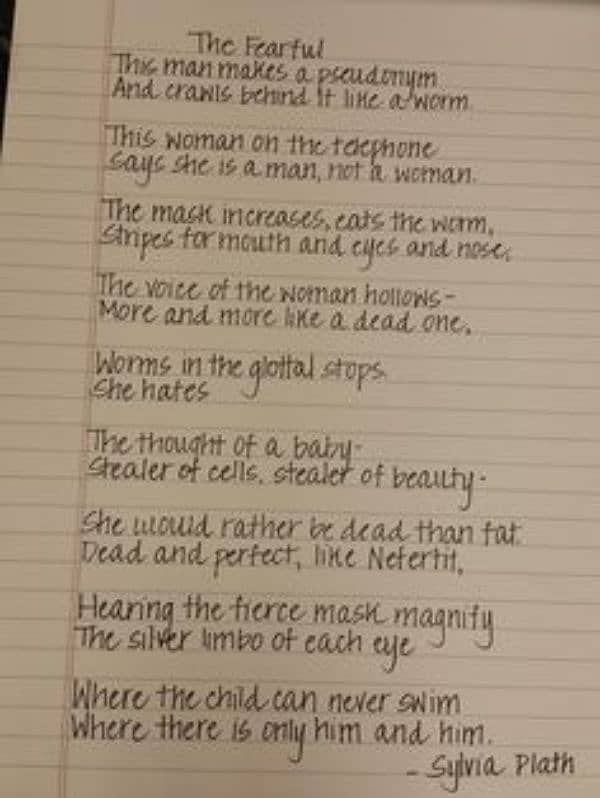 The Fearful
This man makes a pseudonym
And crawls behind it like a worm.
This woman on the telephone
Says she is a man, not a woman.
The mask increases, eats the worm,
Stripes for mouth and eyes and nose,
The voice of the woman hollows-
More and more like a dead one,
Worms in the glottal stops.
She hates
The thought of a baby-
Stealer of cells, stealer of beauty-
She would rather be dead than fat.
Dead and perfect, like Nefertit,
Hearing the fierce mask magnify
The silver limbo of each eye
Where the child can never swim
Where there is only him and him.
- Sylvia Plath